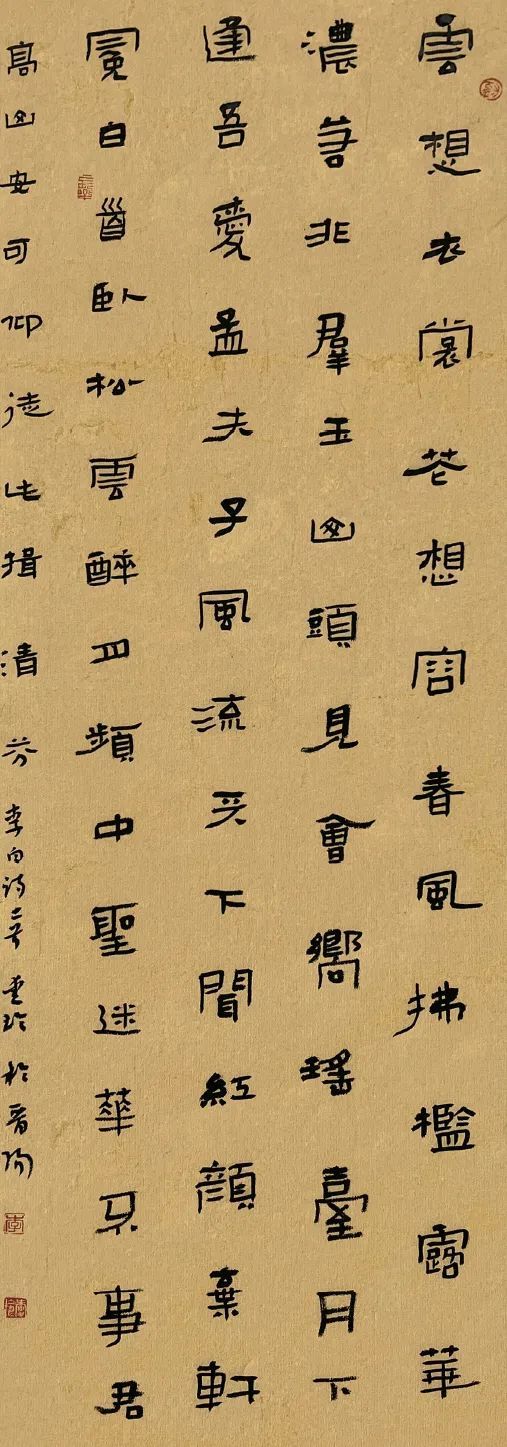 雲想衣裳花想容春風拂檻露華
濃若非羣玉山頭見會嚮瑤臺月下
逢吾愛孟夫子風流天下聞紅顏棄軒
冕白首臥松雲醉月頻中聖迷華不事君
高山安可仰徒此揖清芬 李白詩二首 於晉陽